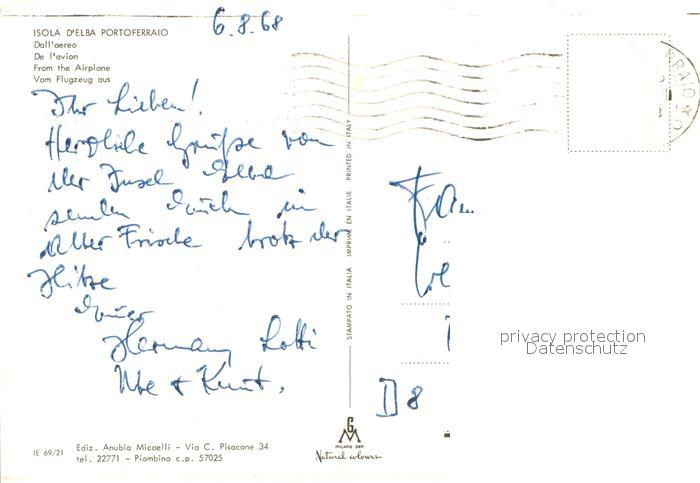 6.8.68
ISOLA D'ELBA PORTOFERRAIO
Dall'aereo
De l'avion
From the Airplane
Vom Flugzeug aus
Ihr Lieben!
Herzliche Grüße von
der Insel Elba
senden Euch in
alter Frische trotz der
Hitze
Euer
Hermann Lotti
Ute + Kurt.
STAMPATO IN ITALIA IMPRIMÉ EN ITALIE PRINTED IN ITALY
Fam.
D 8
privacy protection
Datenschutz
IE 69/21
Ediz. Anubio Micaelli - Via C. Pisacane 34
tel. 22771 - Piombino c.p. 57025
GM
MILANO DEP.
Natural colours